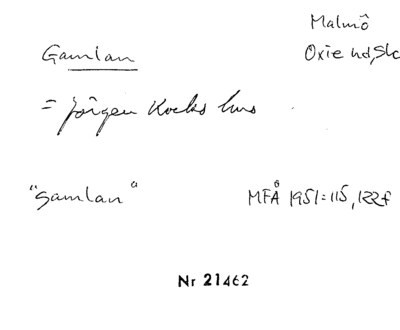 Malmö
Gamlan
Oxie hd, Sk
= Jörgen Kocks hus
"Gamlan"
MFÅ 1951:115, 122f
Nr 21462